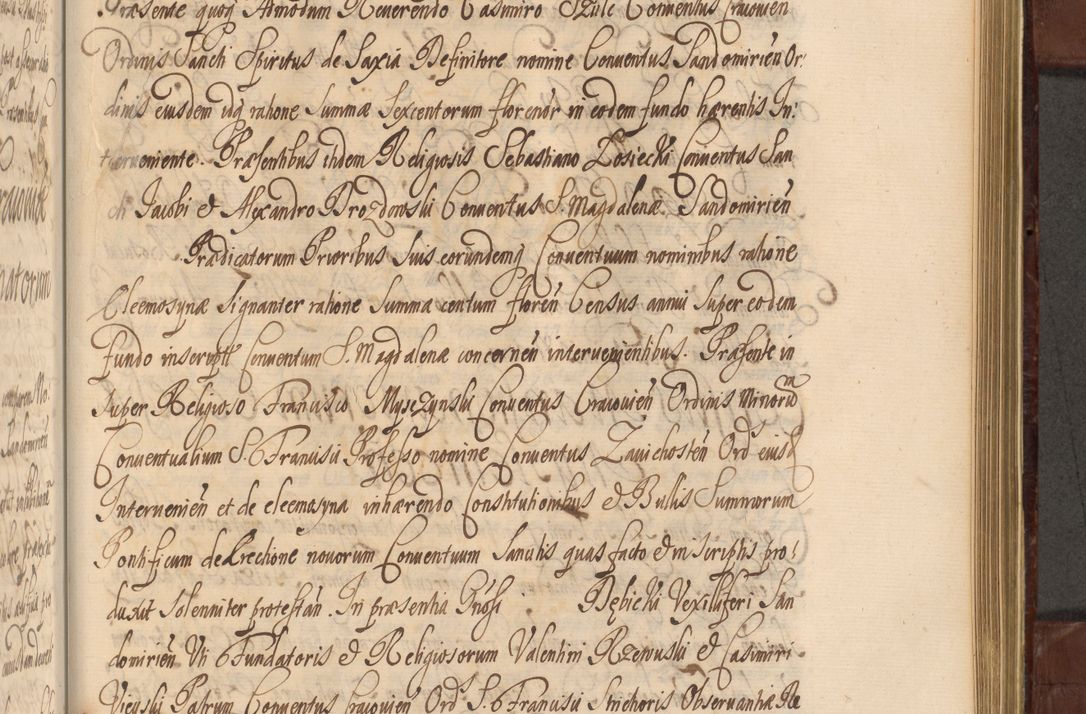 Præsente quoq Admodum Reuerendo Casimiro Szulc Conuentus Cracouien
Ordinis Sancti Spiritus de Saxia Definitore nomine Conuentus Sandomirien Or:
dinis eiusdem idq ratione Summæ Sexcentorum florenor in eodem fundo hærentis In:
terueniente. Præsentibus itidem Religiosis Sebastiano Łosiecki Conuentus San
cti Jacobi & Alexandro Drozdowski Conuentus S. Magdalenæ Sandomirien
Prædicatorum Prioribus Suis eorundemq Conuentuum nominibus ratione
Eleemosynæ Signanter ratione Summæ centum floren Census annui Super eodem
fundo inscript Conuentum S. Magdalenæ concernen interuenientibus. Præsente in
Super Religioso Francisco Myszynski Conuentus Cracouien Ordinis Minorum
Conuentualium S. Francisci Professo nomine Conuentus Zawichosten Ord eiusd
Interuenien et de eleemosyna inhærendo Constitutionibus & Bullis Summorum
Pontificum de Erectione nouorum Conuentuum Sancitis quas facto & in Scriptis pro:
duxit Solenniter protestan. In præsentia Gnosi Dębicki Vexilliferi San
domirien Vti Fundatoris & Religiosorum Valentini Rzewuski & Casimiri
Patrum Conuentus Cracouien Ord S. Francisci Strictioris Obseruantiæ Re